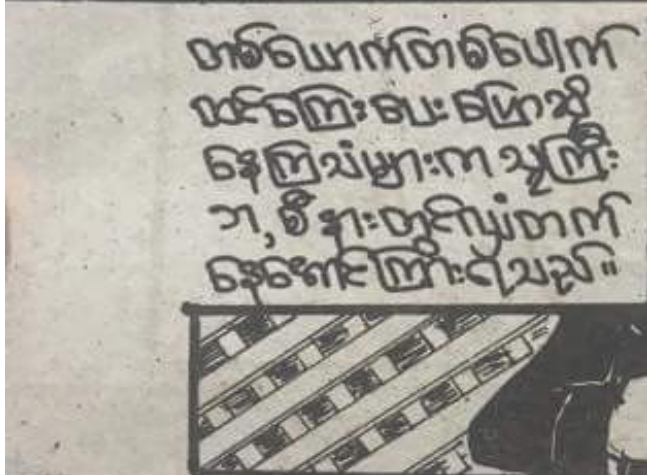 တစ်ယောက်တစ်ပေါက်
ထင်ကြေးပေးပြောဆို
နေကြသံများက သူကြီး
ဘ,စီ နားတွင်ပျံ့တက်
နေအောင်ကြားရသည်။